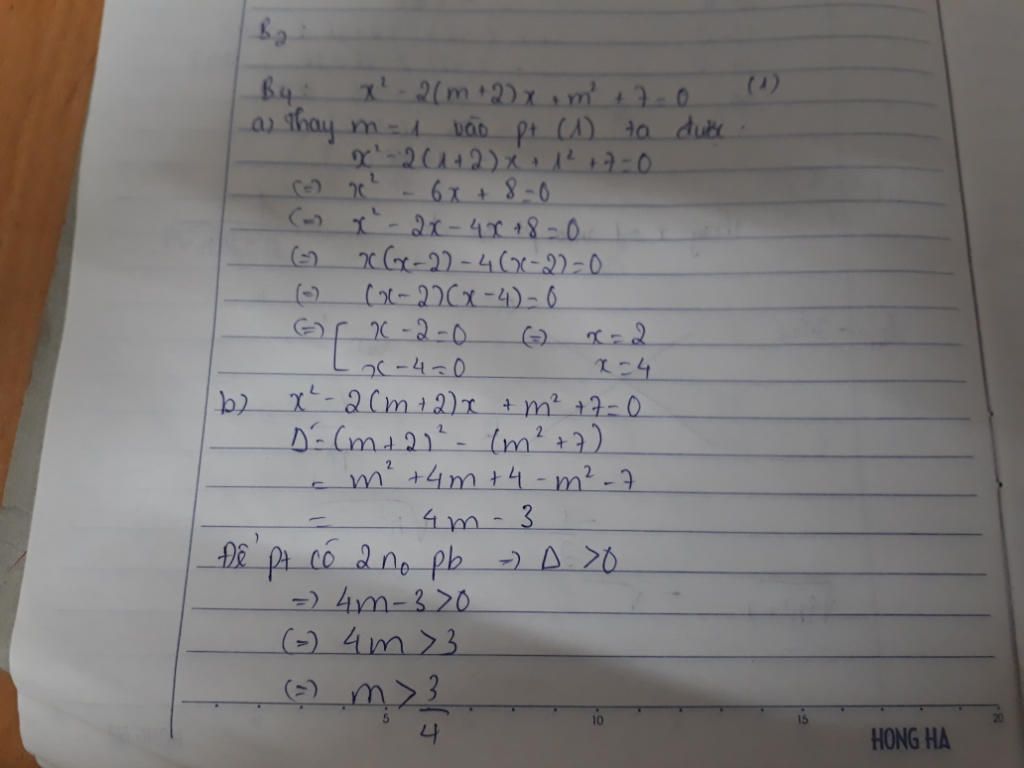 B2:
B4: x² - 2(m+2)x + m² + 7 = 0 (1)
a) Thay m = 1 vào pt (1) ta được:
x² - 2(1+2)x + 1² + 7 = 0
(=) x² - 6x + 8 = 0
(=) x² - 2x - 4x + 8 = 0
(=) x(x-2) - 4(x-2) = 0
(=) (x-2)(x-4) = 0
(=) [ x - 2 = 0 (=) x = 2
x - 4 = 0 x = 4
b) x² - 2(m+2)x + m² + 7 = 0
Δ' = (m+2)² - (m² + 7)
= m² + 4m + 4 - m² - 7
= 4m - 3
Để pt có 2 n0 pb => Δ > 0
=> 4m - 3 > 0
(=) 4m > 3
(=) m > 3/4
5 10 15 20
HONG HA